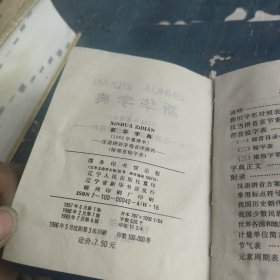 XINHUA ZIDIAN
新华字典
XINHUA ZIDIAN
新华字典
(1992年重排本)
(汉语拼音字母音序排列)
(附部首检字表)
商务印书馆出版
辽宁人民出版社重印
辽宁省新华书店发行
锦州印刷厂印刷
ISBN 7-100-00042-4/H·16
1957年6月第1版
1990年2月第7版
1993年7月第
开本 787×1092 1/64
印张
1996年5月沈阳第3次印刷
印数 100 000册
定价:7.50元
说明
新旧字形对照表
汉语拼音音节索
部首检字表
(一)部首目录
(二)检字表
(三)难检字笔
字典正文
附录
汉语拼音方案
常用标点符号
我国历史朝代
我国少数民族
世界各国和地
计量单位简
节气表
元素周期表